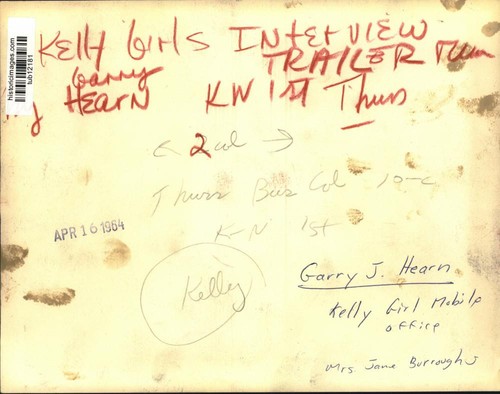 Kelly Girls INterVIEW
TRAILER
Garry
HEARN KW 1st Thurs
< 2 col >
Thurs Bus Col 10-c
K-N 1st
APR 16 1964
Kelly
Garry J. Hearn
Kelly Girl Mobile
office
Mrs Jane Burroughs
historicimages.com
tub12181